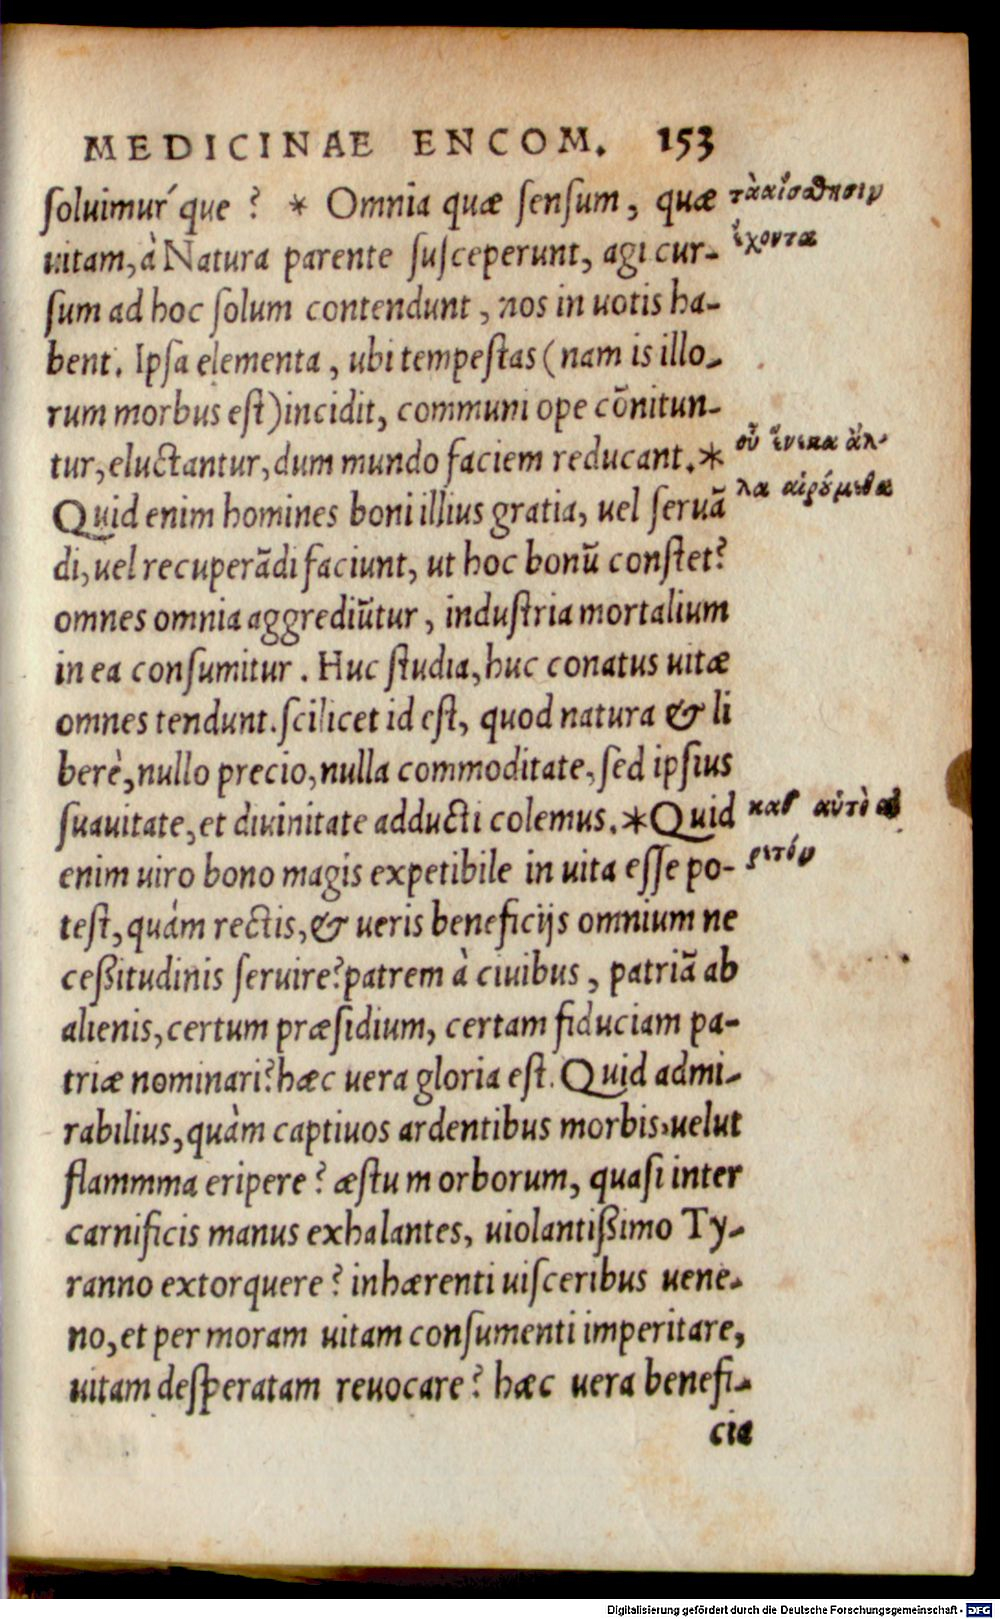 MEDICINAE ENCOM. 153
ſoluimuŕ que ? * Omnia quæ ſenſum, quæ
uitam, à Natura parente ſuſceperunt, agi cur-
ſum ad hoc ſolum contendunt, nos in uotis ha-
bent. Ipſa elementa, ubi tempeſtas (nam is illo-
rum morbus eſt) incidit, communi ope cōnitun-
tur, eluctantur, dum mundo faciem reducant. *
Quid enim homines boni illius gratia, uel ſeruā
di, uel recuperādi faciunt, ut hoc bonū conſtet?
omnes omnia aggrediūtur, induſtria mortalium
in ea conſumitur. Huc ſtudia, huc conatus uitæ
omnes tendunt. ſcilicet id eſt, quod natura & li
berè, nullo precio, nulla commoditate, ſed ipſius
ſuauitate, et diuinitate adducti colemus. * Quid
enim uiro bono magis expetibile in uita eſſe po-
teſt, quám rectis, & ueris beneficijs omnium ne
ceßitudinis ſeruire? patrem à ciuibus, patriā ab
alienis, certum præſidium, certam fiduciam pa-
triæ nominari? hæc uera gloria eſt. Quid admi-
rabilius, quàm captiuos ardentibus morbis, uelut
flammma eripere? æſtu morborum, quaſi inter
carnificis manus exhalantes, uiolantißimo Ty-
ranno extorquere? inhærenti uiſceribus uene-
no, et per moram uitam conſumenti imperitare,
uitam deſperatam reuocare? hæc uera benefi-
cia
τὰ αἴσθησιν
ἔχοντα
οὗ ἕνεκα ἄλ-
λα αἱρούμεθα
καθ αὑτὸ αἱ
ρετόν
Digitalisierung gefördert durch die Deutsche Forschungsgemeinschaft - DFG